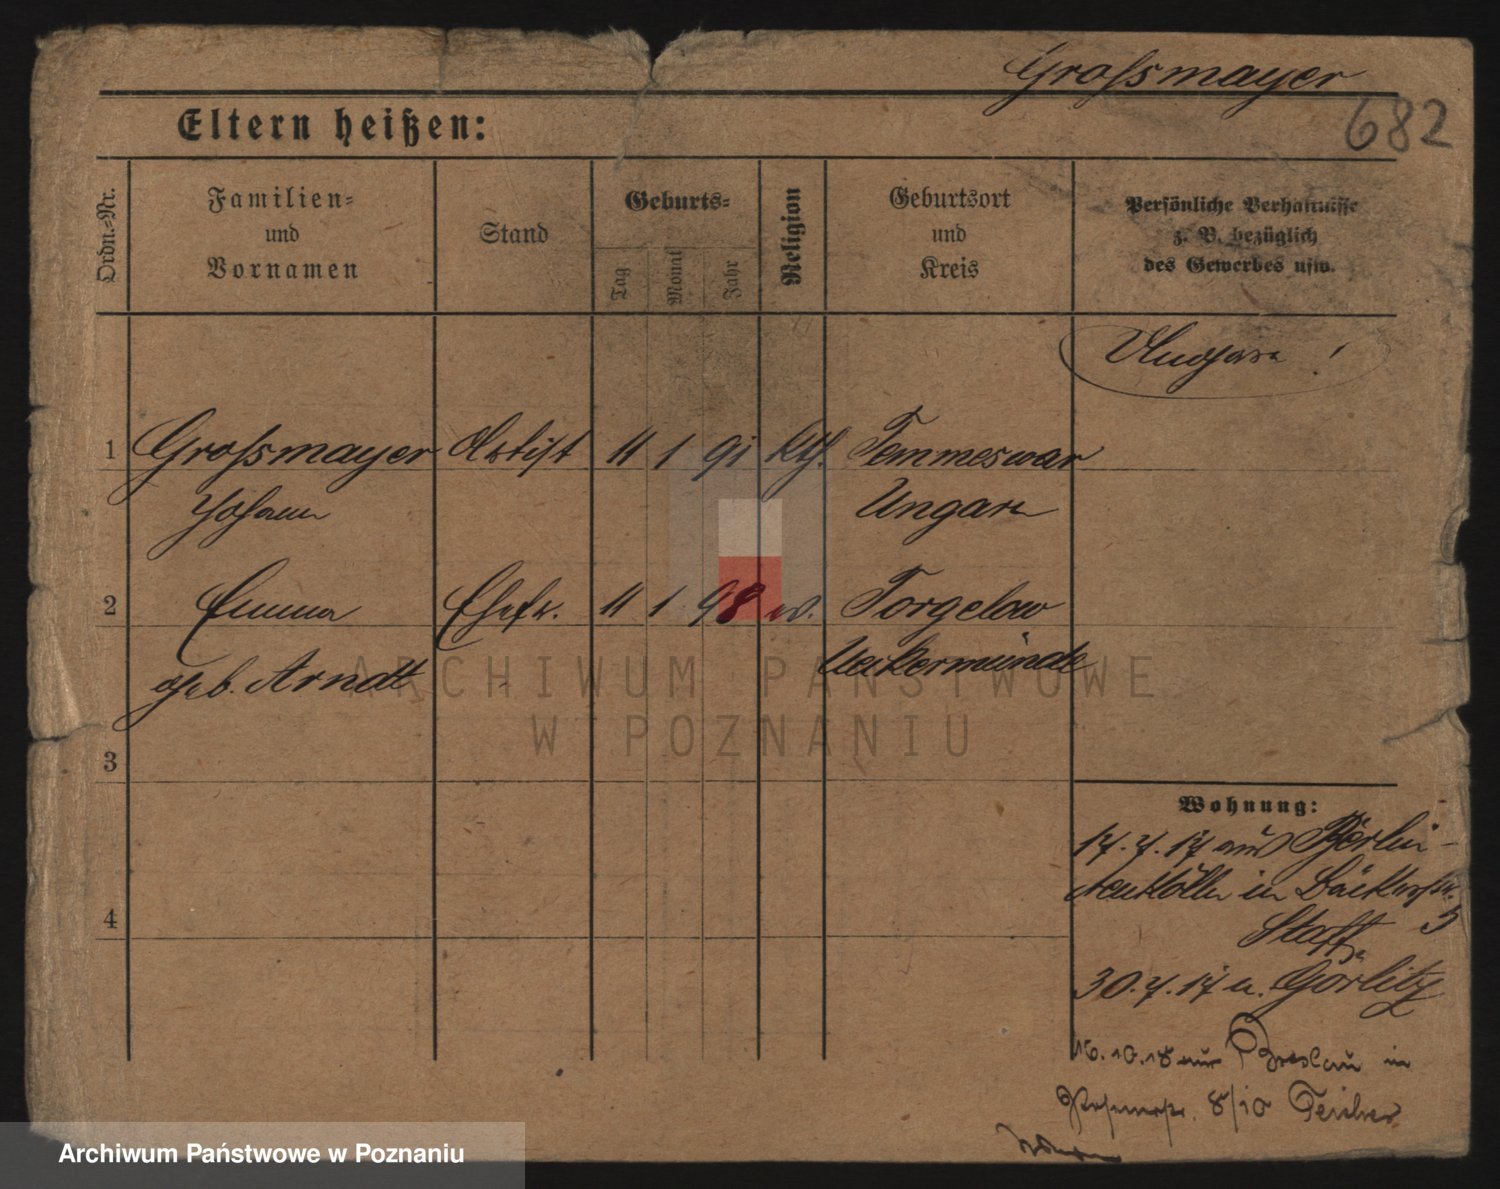 Grossmayer
682
Eltern heißen:
Ordn.-Nr.
Familien-
und
Vornamen
Stand
Geburts-
Tag
Monat
Jahr
Religion
Geburtsort
und
Kreis
Persönliche Verhältnisse
z. B. bezüglich
des Gewerbes usw.
1 Grossmayer Artist 11 1 91 kth. Temmeswar
Johann Ungarn
2 Emma Ehefr. 11 1 98 ev. Torgelow
geb. Arndt Ueckermünde
3
4
Wohnung:
17.7.17 aus Berlin-
Neukölln in Bäckerstr. 5
30.7.17 n. Görlitz
16.10.18 aus Breslau in
8/10
ARCHIWUM PAŃSTWOWE
W POZNANIU
Archiwum Państwowe w Poznaniu